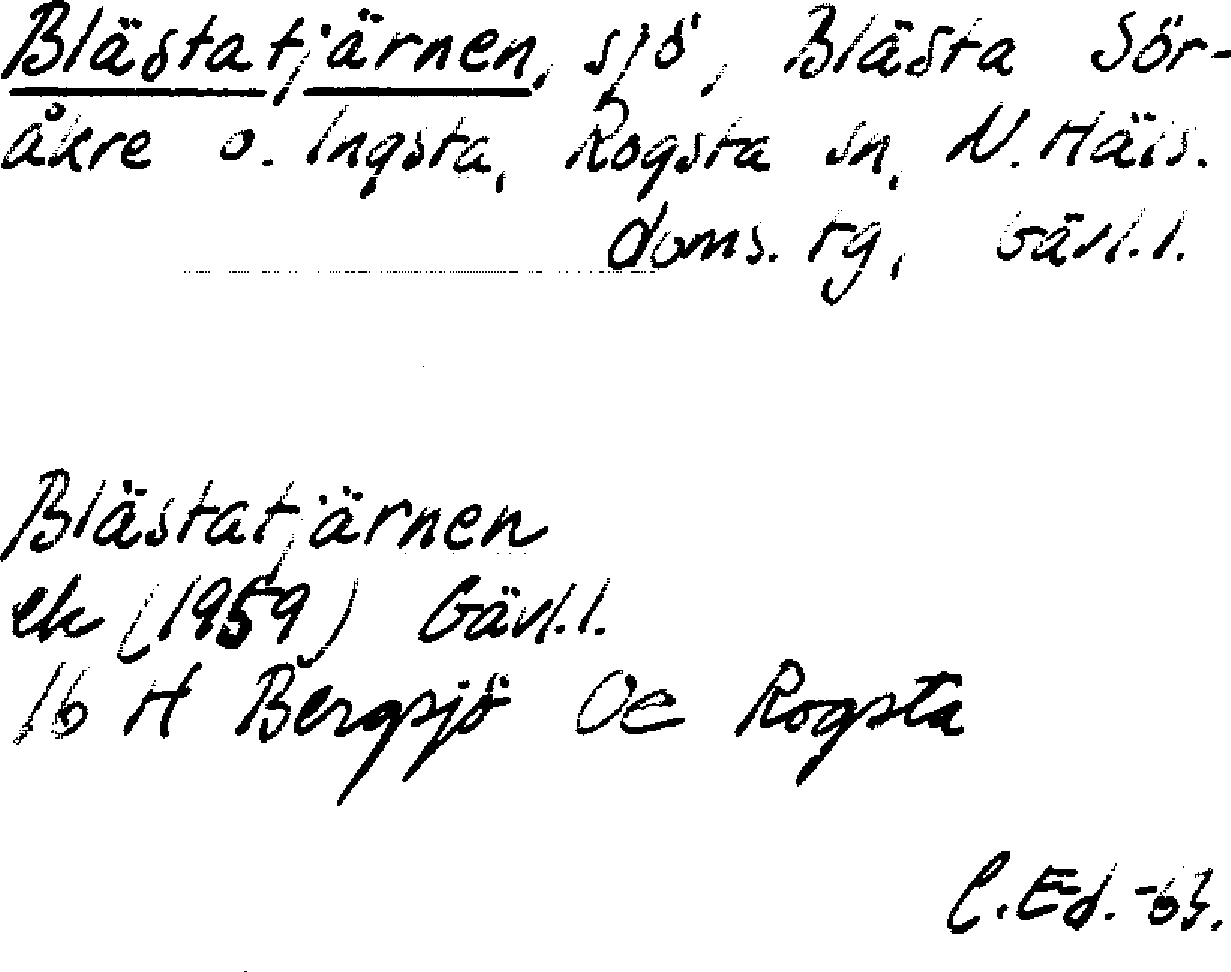 Blästatjärnen, sjö, Blästa Sör-
åkre o. Ingsta, Rogsta sn, N. Häls.
doms. tg, Gävl.l.
Blästatjärnen
ek (1959) Gävl.l.
16 H Bergsjö 0c Rogsta
C.Ed.-63.